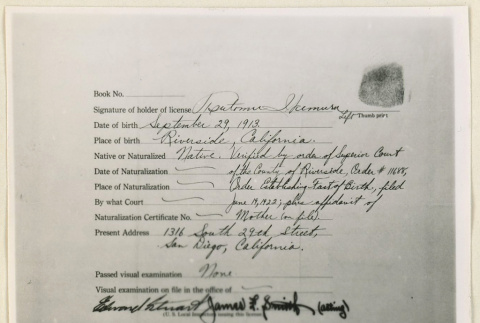 Book No.
Signature of holder of license Tsutomu Ikemura
Left Thumb print
Date of birth September 29, 1913.
Place of birth Riverside, California.
Native or Naturalized Native. Verified by order of Superior Court
Date of Naturalization of the County of Riverside, Order #
Place of Naturalization Order Establishing Fact of Birth, filed
By what Court June 19, 1922; plus affidavit of
Naturalization Certificate No. Mother (on file).
Present Address 1316 South 29th Street,
San Diego, California.
Passed visual examination None
Visual examination on file in the office of
Edward Stewart James L. Smith, (acting)
(U. S. Local Inspectors issuing this license)